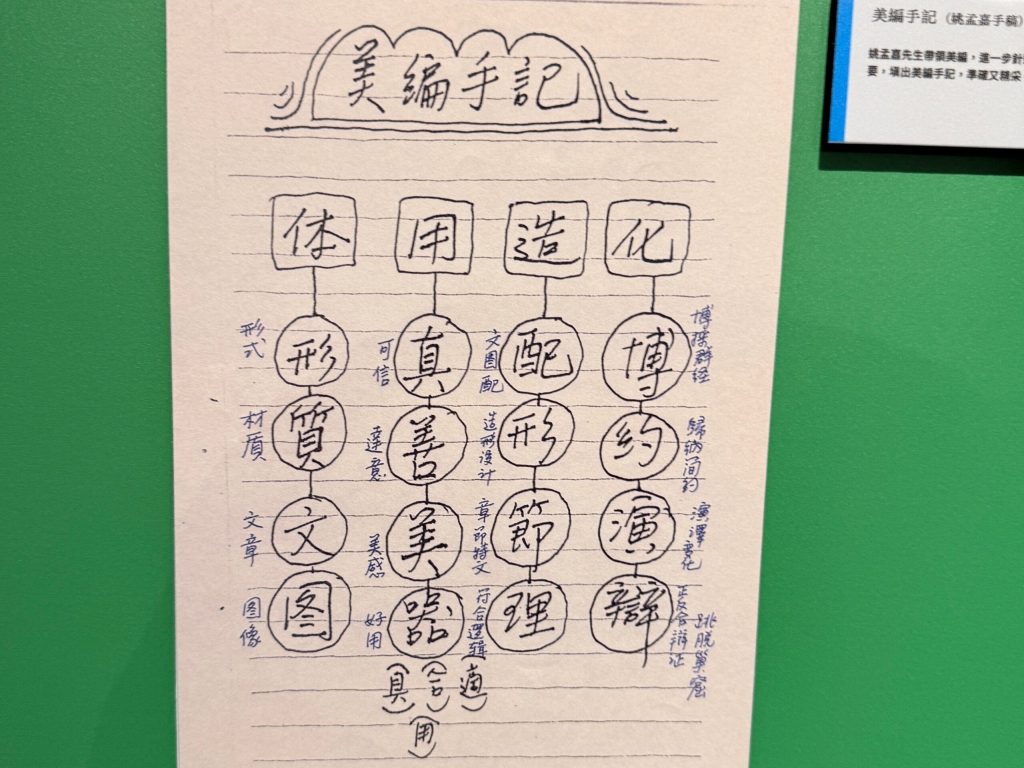 美編手記
体 用 造 化
形 真 配 博
形式 可信 文图配 博採群经
質 善 形 約
材质 達意 造形设计 歸納间约
文 美 節 演
文章 美感 章節特文 演繹变化
图 器 理 辯
图像 好用 符合邏辑 正反合辩证 跳脱巢窟
(具) (合) (適)
(用)
美編手記（姚孟嘉手稿）
姚孟嘉先生帶領美編，進一步針
要，填出美編手記，準確又精采